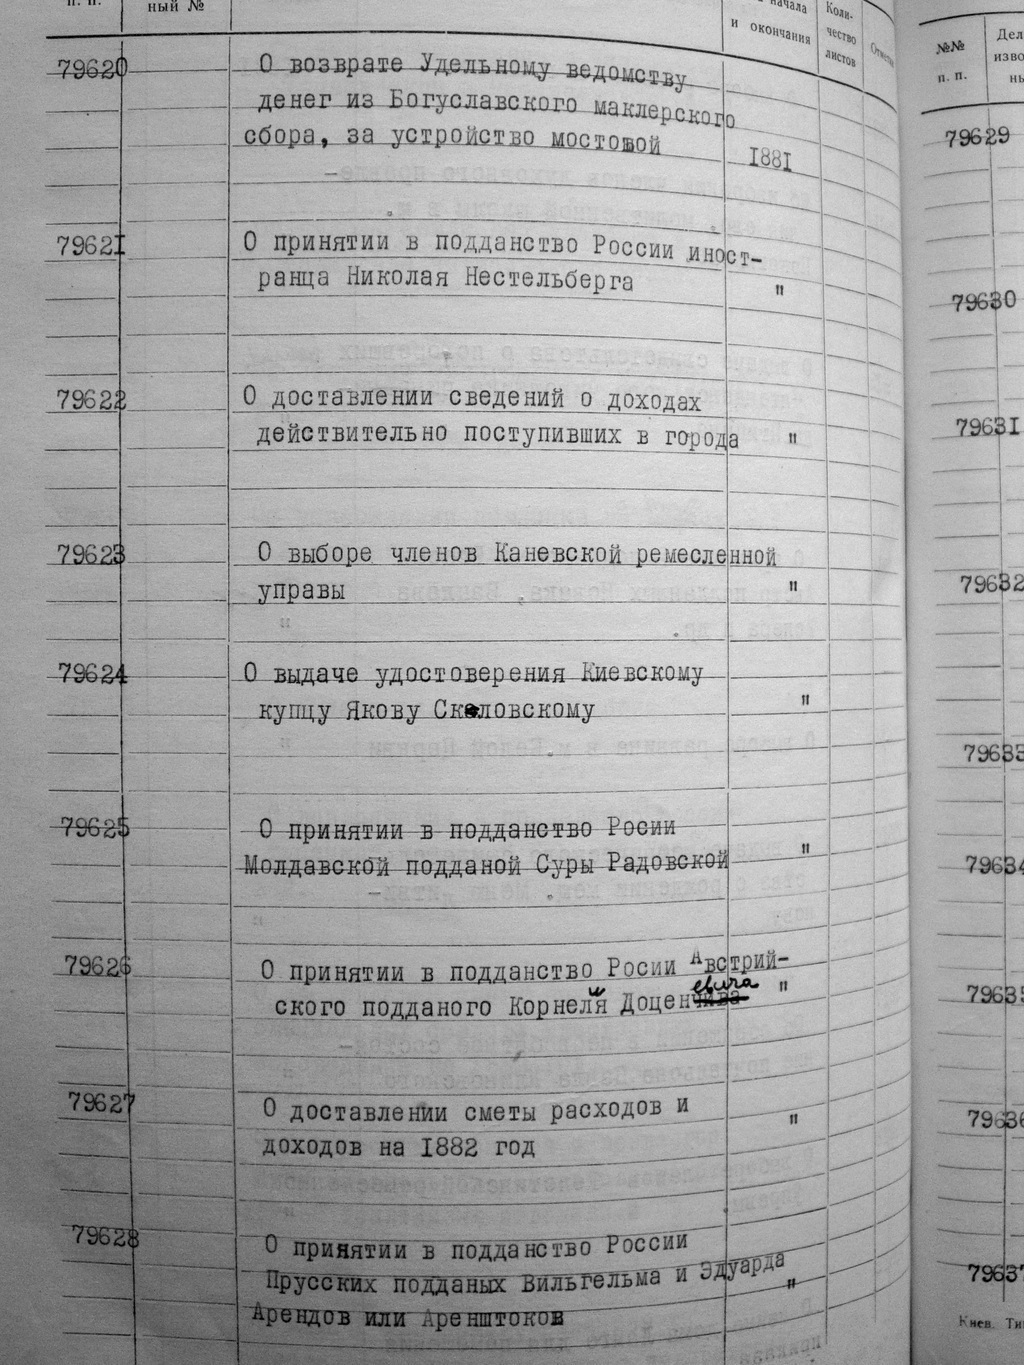 п. п.
ный №
начала
и окончания
Коли-
чество
листов
79620
О возврате Удельному ведомству
денег из Богуславского маклерского
сбора, за устройство мостовой
1881
79621
О принятии в подданство России иност-
ранца Николая Нестельберга
"
79622
О доставлении сведений о доходах
действительно поступивших в города
"
79623
О выборе членов Каневской ремесленной
управы
"
79624
О выдаче удостоверения Киевскому
купцу Якову Скаловскому
"
79625
О принятии в подданство Росии
Молдавской подданой Суры Радовской
"
79626
О принятии в подданство Росии Австрий-
ского подданого Корнеля Доценевича
"
79627
О доставлении сметы расходов и
доходов на 1882 год
"
79628
О принятии в подданство России
Прусских подданых Вильгельма и Эдуарда
Арендов или Аренштоков
"
№№
п. п.
Дел
изво
ны
79629
79630
79631
79632
79633
79634
79635
79636
79637
Киев. Ти